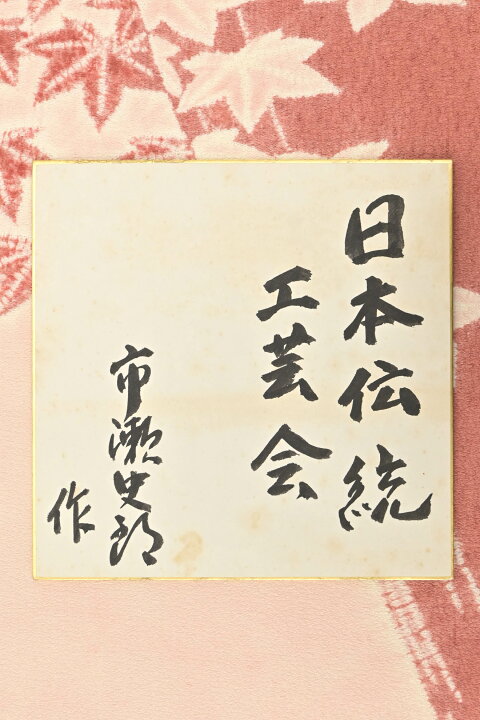 日本伝統
工芸会
市瀬史朗
作